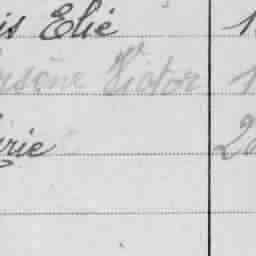 is Elie 1
rsène Victor 1
rie 2